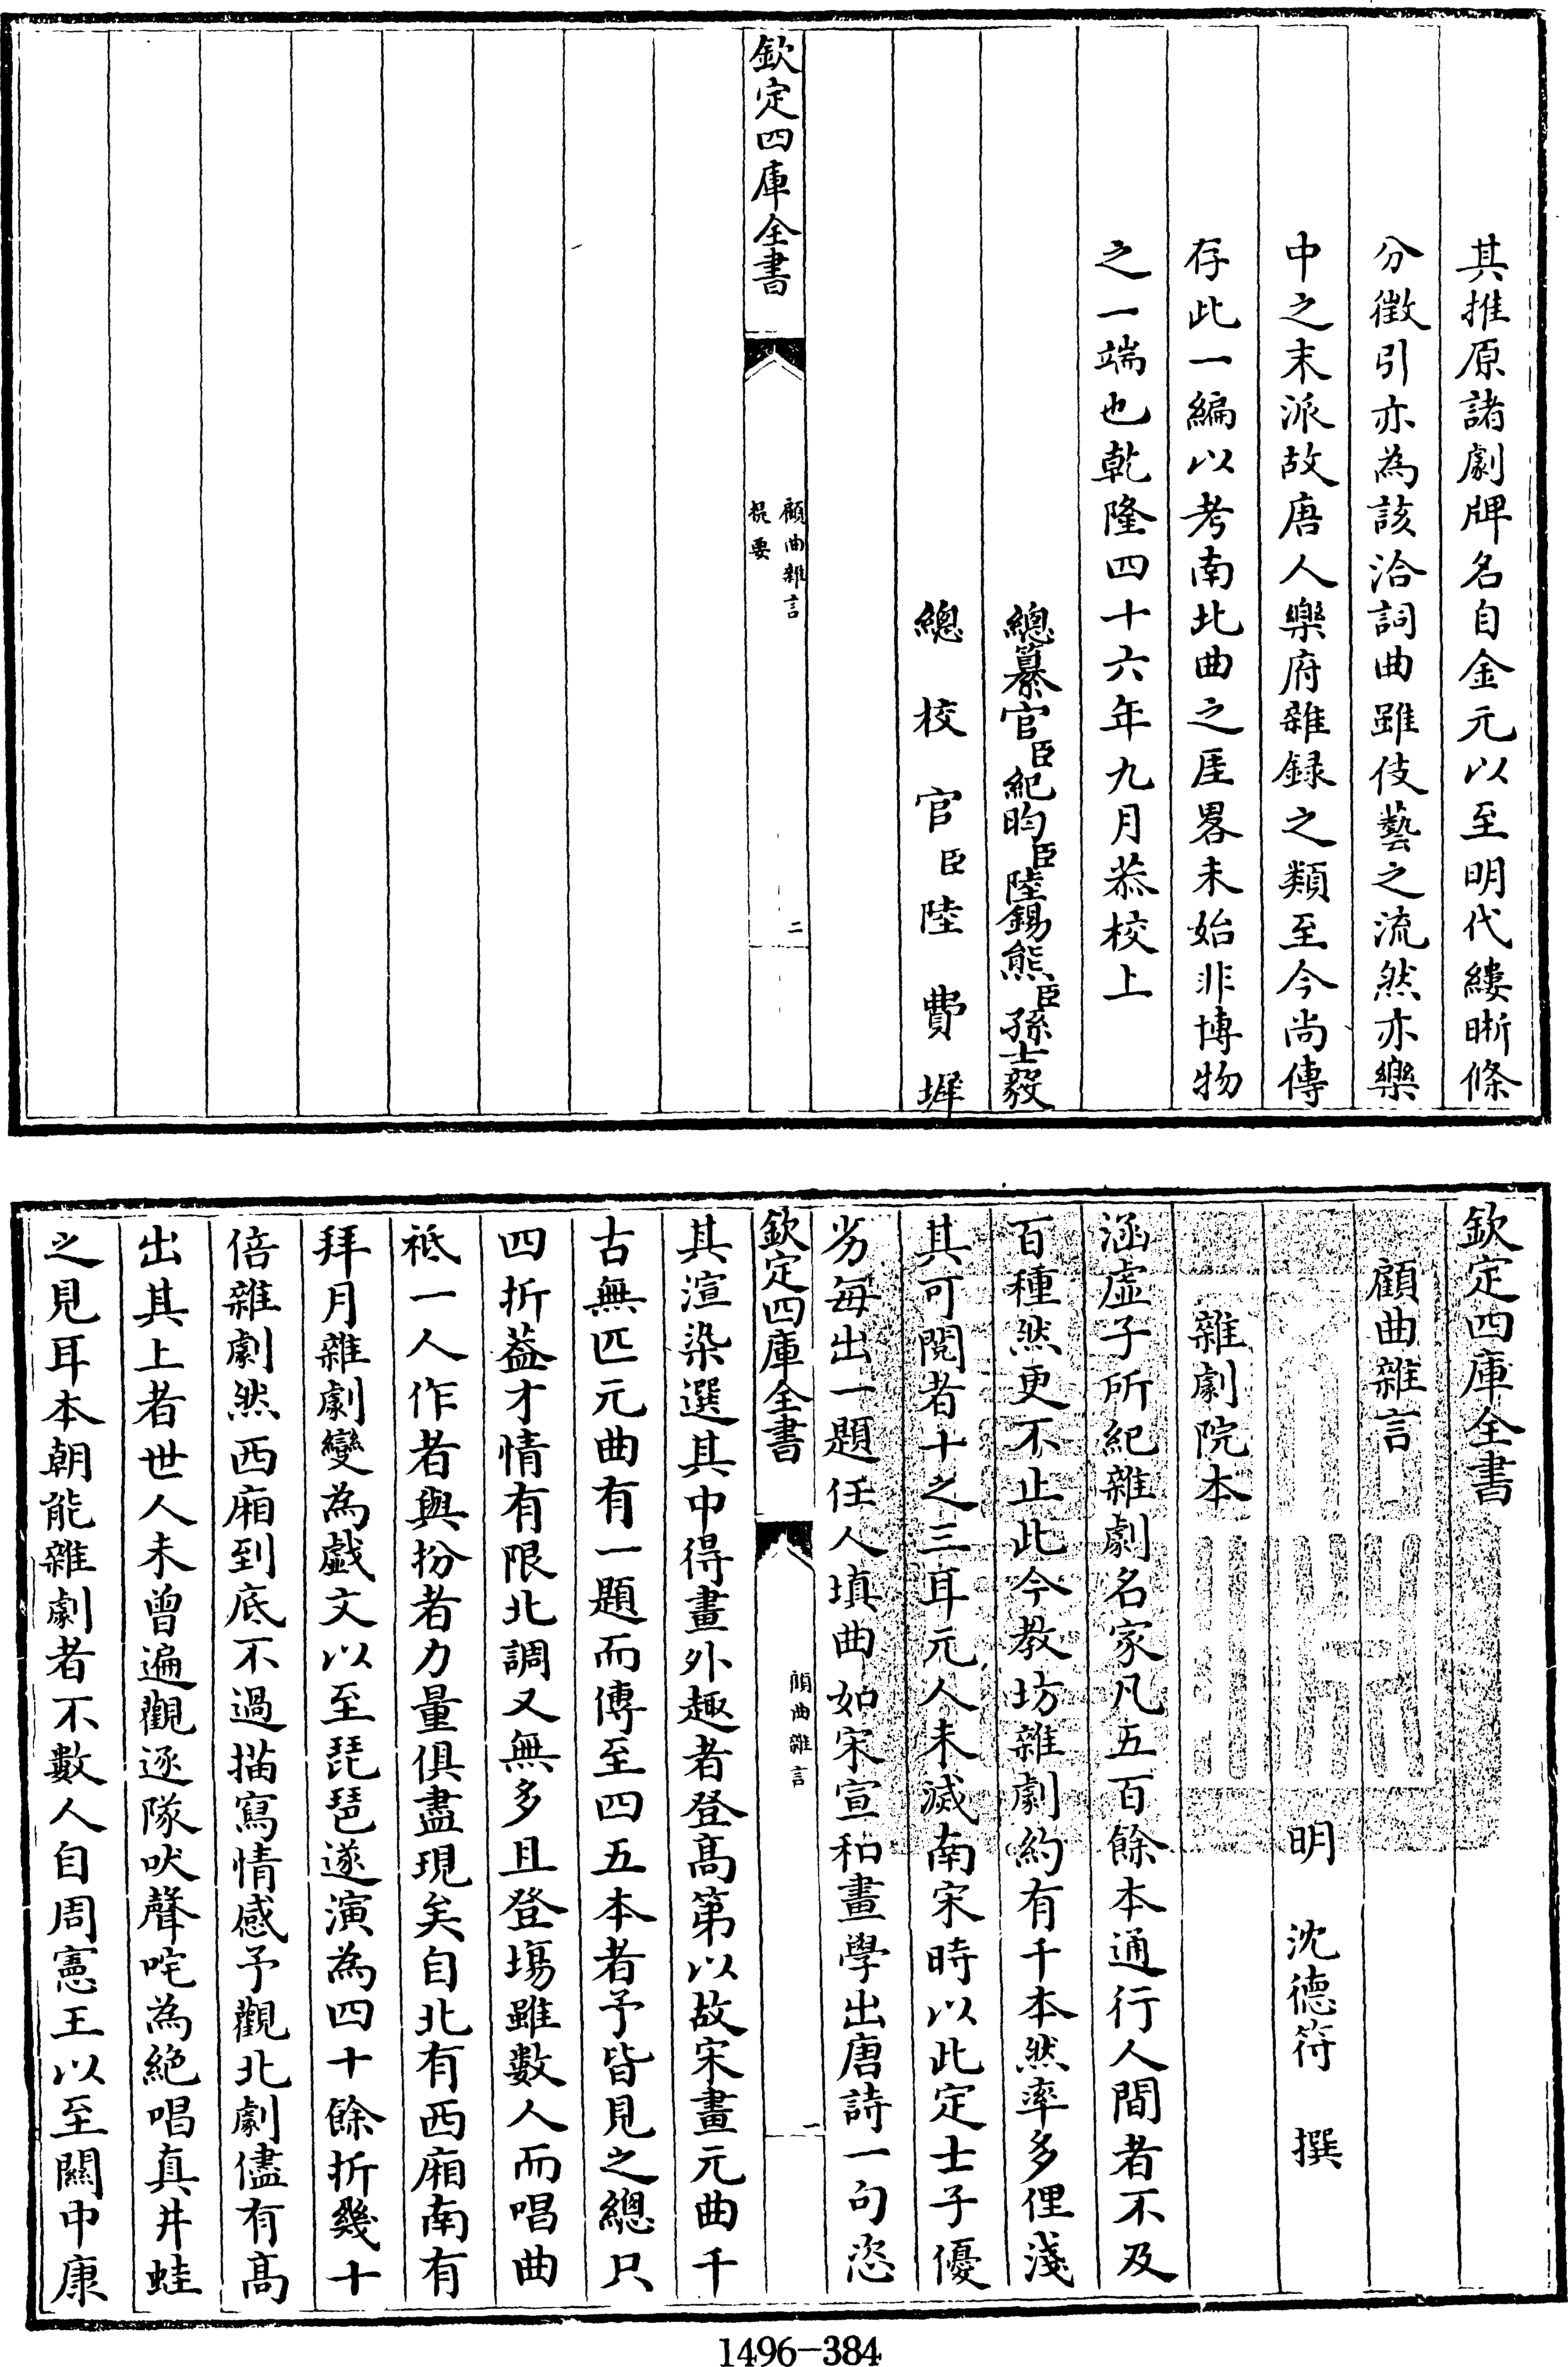 其推原諸劇牌名自金元以至明代縷晰條
分徵引亦為該洽詞曲雖伎藝之流然亦樂
中之末派故唐人樂府雜録之類至今尚傳
存此一編以考南北曲之厓畧未始非博物
之一端也乾隆四十六年九月恭校上
總纂官臣紀昀臣陸錫熊臣孫士毅
總校官臣陸費墀
欽定四庫全書
顧曲雜言
提要
二
欽定四庫全書
顧曲雜言
明 沈德符 撰
雜劇院本
涵虛子所紀雜劇名家凡五百餘本通行人間者不及
百種然更不止此今教坊雜劇約有千本然率多俚淺
其可閱者十之三耳元人未滅南宋時以此定士子優
劣每出一題任人填曲如宋宣和畫學出唐詩一句恣
欽定四庫全書
顧曲雜言
一
其渲染選其中得畫外趣者登高第以故宋畫元曲千
古無匹元曲有一題而傳至四五本者予皆見之總只
四折葢才情有限北調又無多且登塲雖數人而唱曲
祗一人作者與扮者力量俱盡現矣自北有西廂南有
拜月雜劇變為戯文以至琵琶遂演為四十餘折幾十
倍雜劇然西廂到底不過描寫情感予觀北劇儘有高
出其上者世人未曾遍觀逐隊吠聲咤為絶唱真井蛙
之見耳本朝能雜劇者不數人自周憲王以至關中康
1496-384